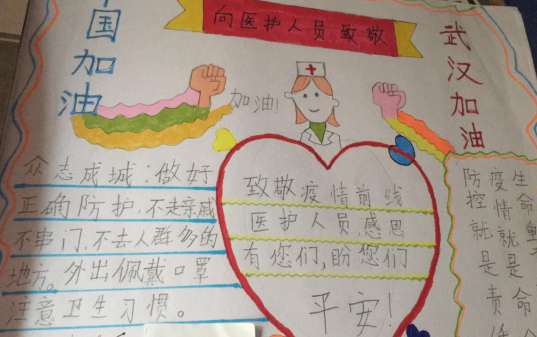 向医护人员致敬
中国加油
武汉加油
加油!
众志成城:做好
正确防护,不走亲戚
不串门,不去人群多的
地方。外出佩戴口罩
注意卫生习惯。
致敬疫情前线
医护人员感恩
有您们,盼您们
平安!
生命
疫情就是命
防控就是责